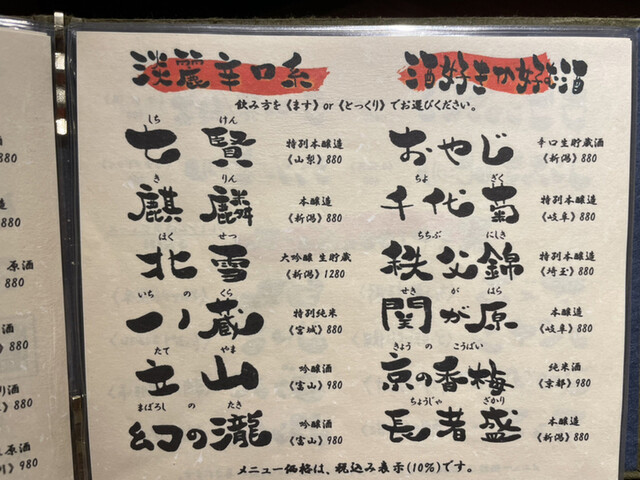 淡麗辛口系
酒好きが好む酒
飲み方を《ます》or《とっくり》でお選びください。
しち けん
七賢
特別本醸造
《山梨》880
き りん
麒麟
本醸造
《新潟》880
ほく せつ
北雪
大吟醸 生貯蔵
《新潟》1280
いち の くら
一ノ蔵
特別純米
《宮城》880
たて やま
立山
吟醸酒
《富山》980
まぼろし の たき
幻の瀧
吟醸酒
《富山》980
おやじ
辛口生貯蔵酒
《新潟》880
ちよ ぎく
千代菊
特別本醸造
《岐阜》880
ちちぶ にしき
秩父錦
特別本醸造
《埼玉》880
せき が はら
関が原
本醸造
《岐阜》880
きょう の こうばい
京の香梅
純米酒
《京都》980
ちょうじゃ ざかり
長者盛
本醸造
《新潟》880
メニュー価格は、税込み表示(10%)です。
酒
880
880
原酒
880
酒
880
り酒
880
原酒
980